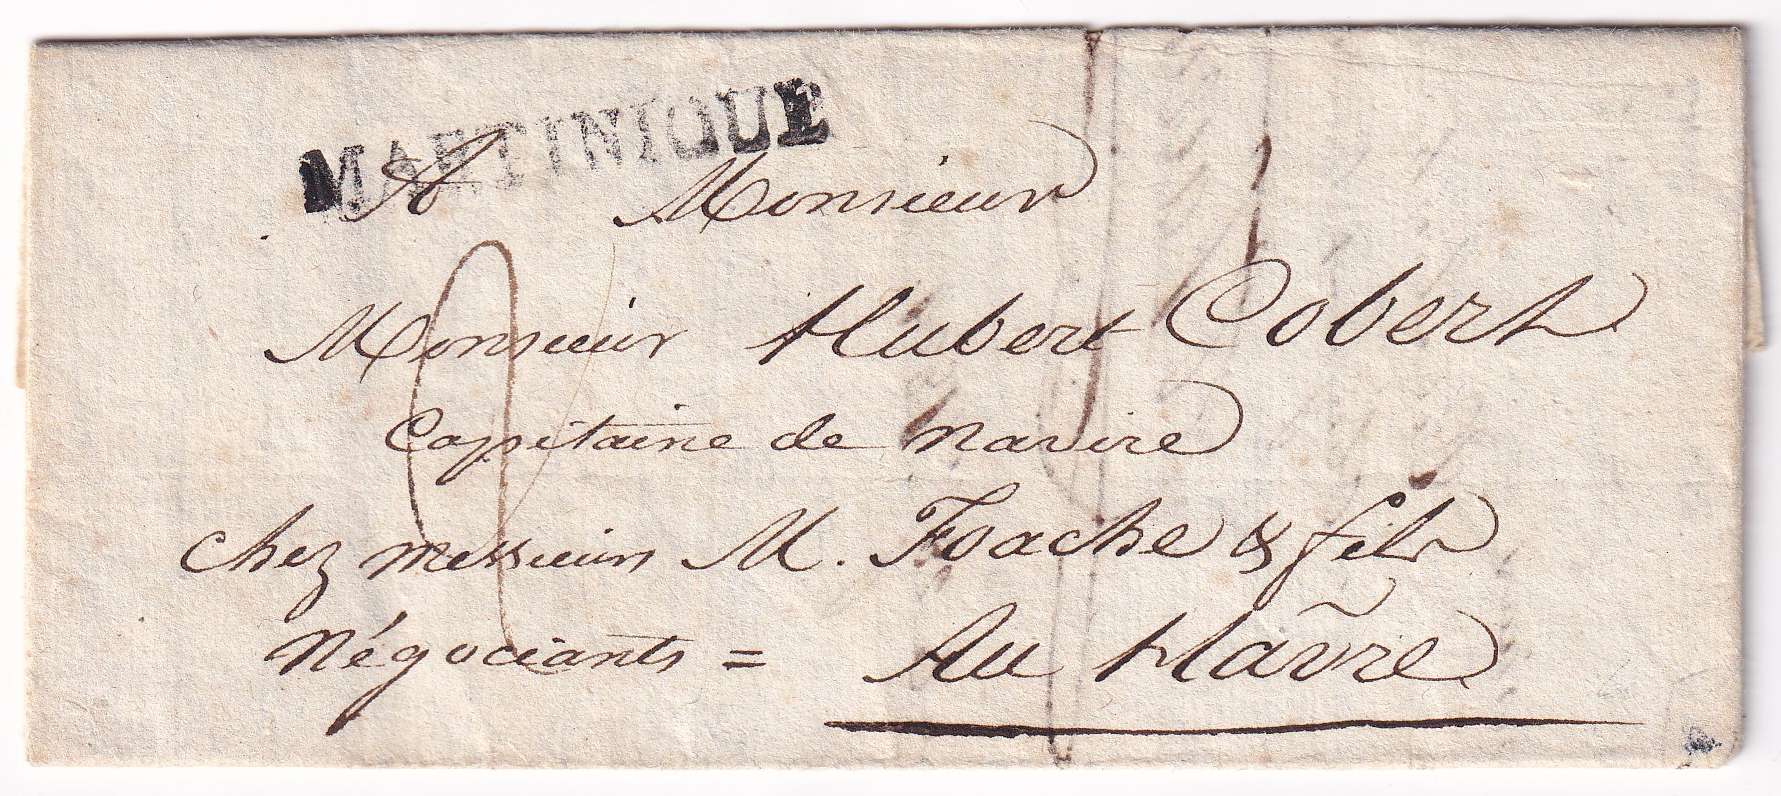 MARTINIQUE
A Monsieur
Monsieur Hubert Cobert
Capitaine de navire
chez messieurs M. Foache & fils
Négociants = Au Havre